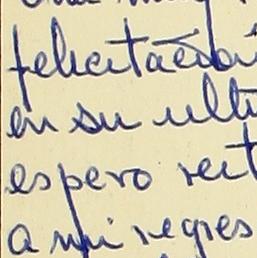 felicitación
en su ulti
espero rect
a mi regres